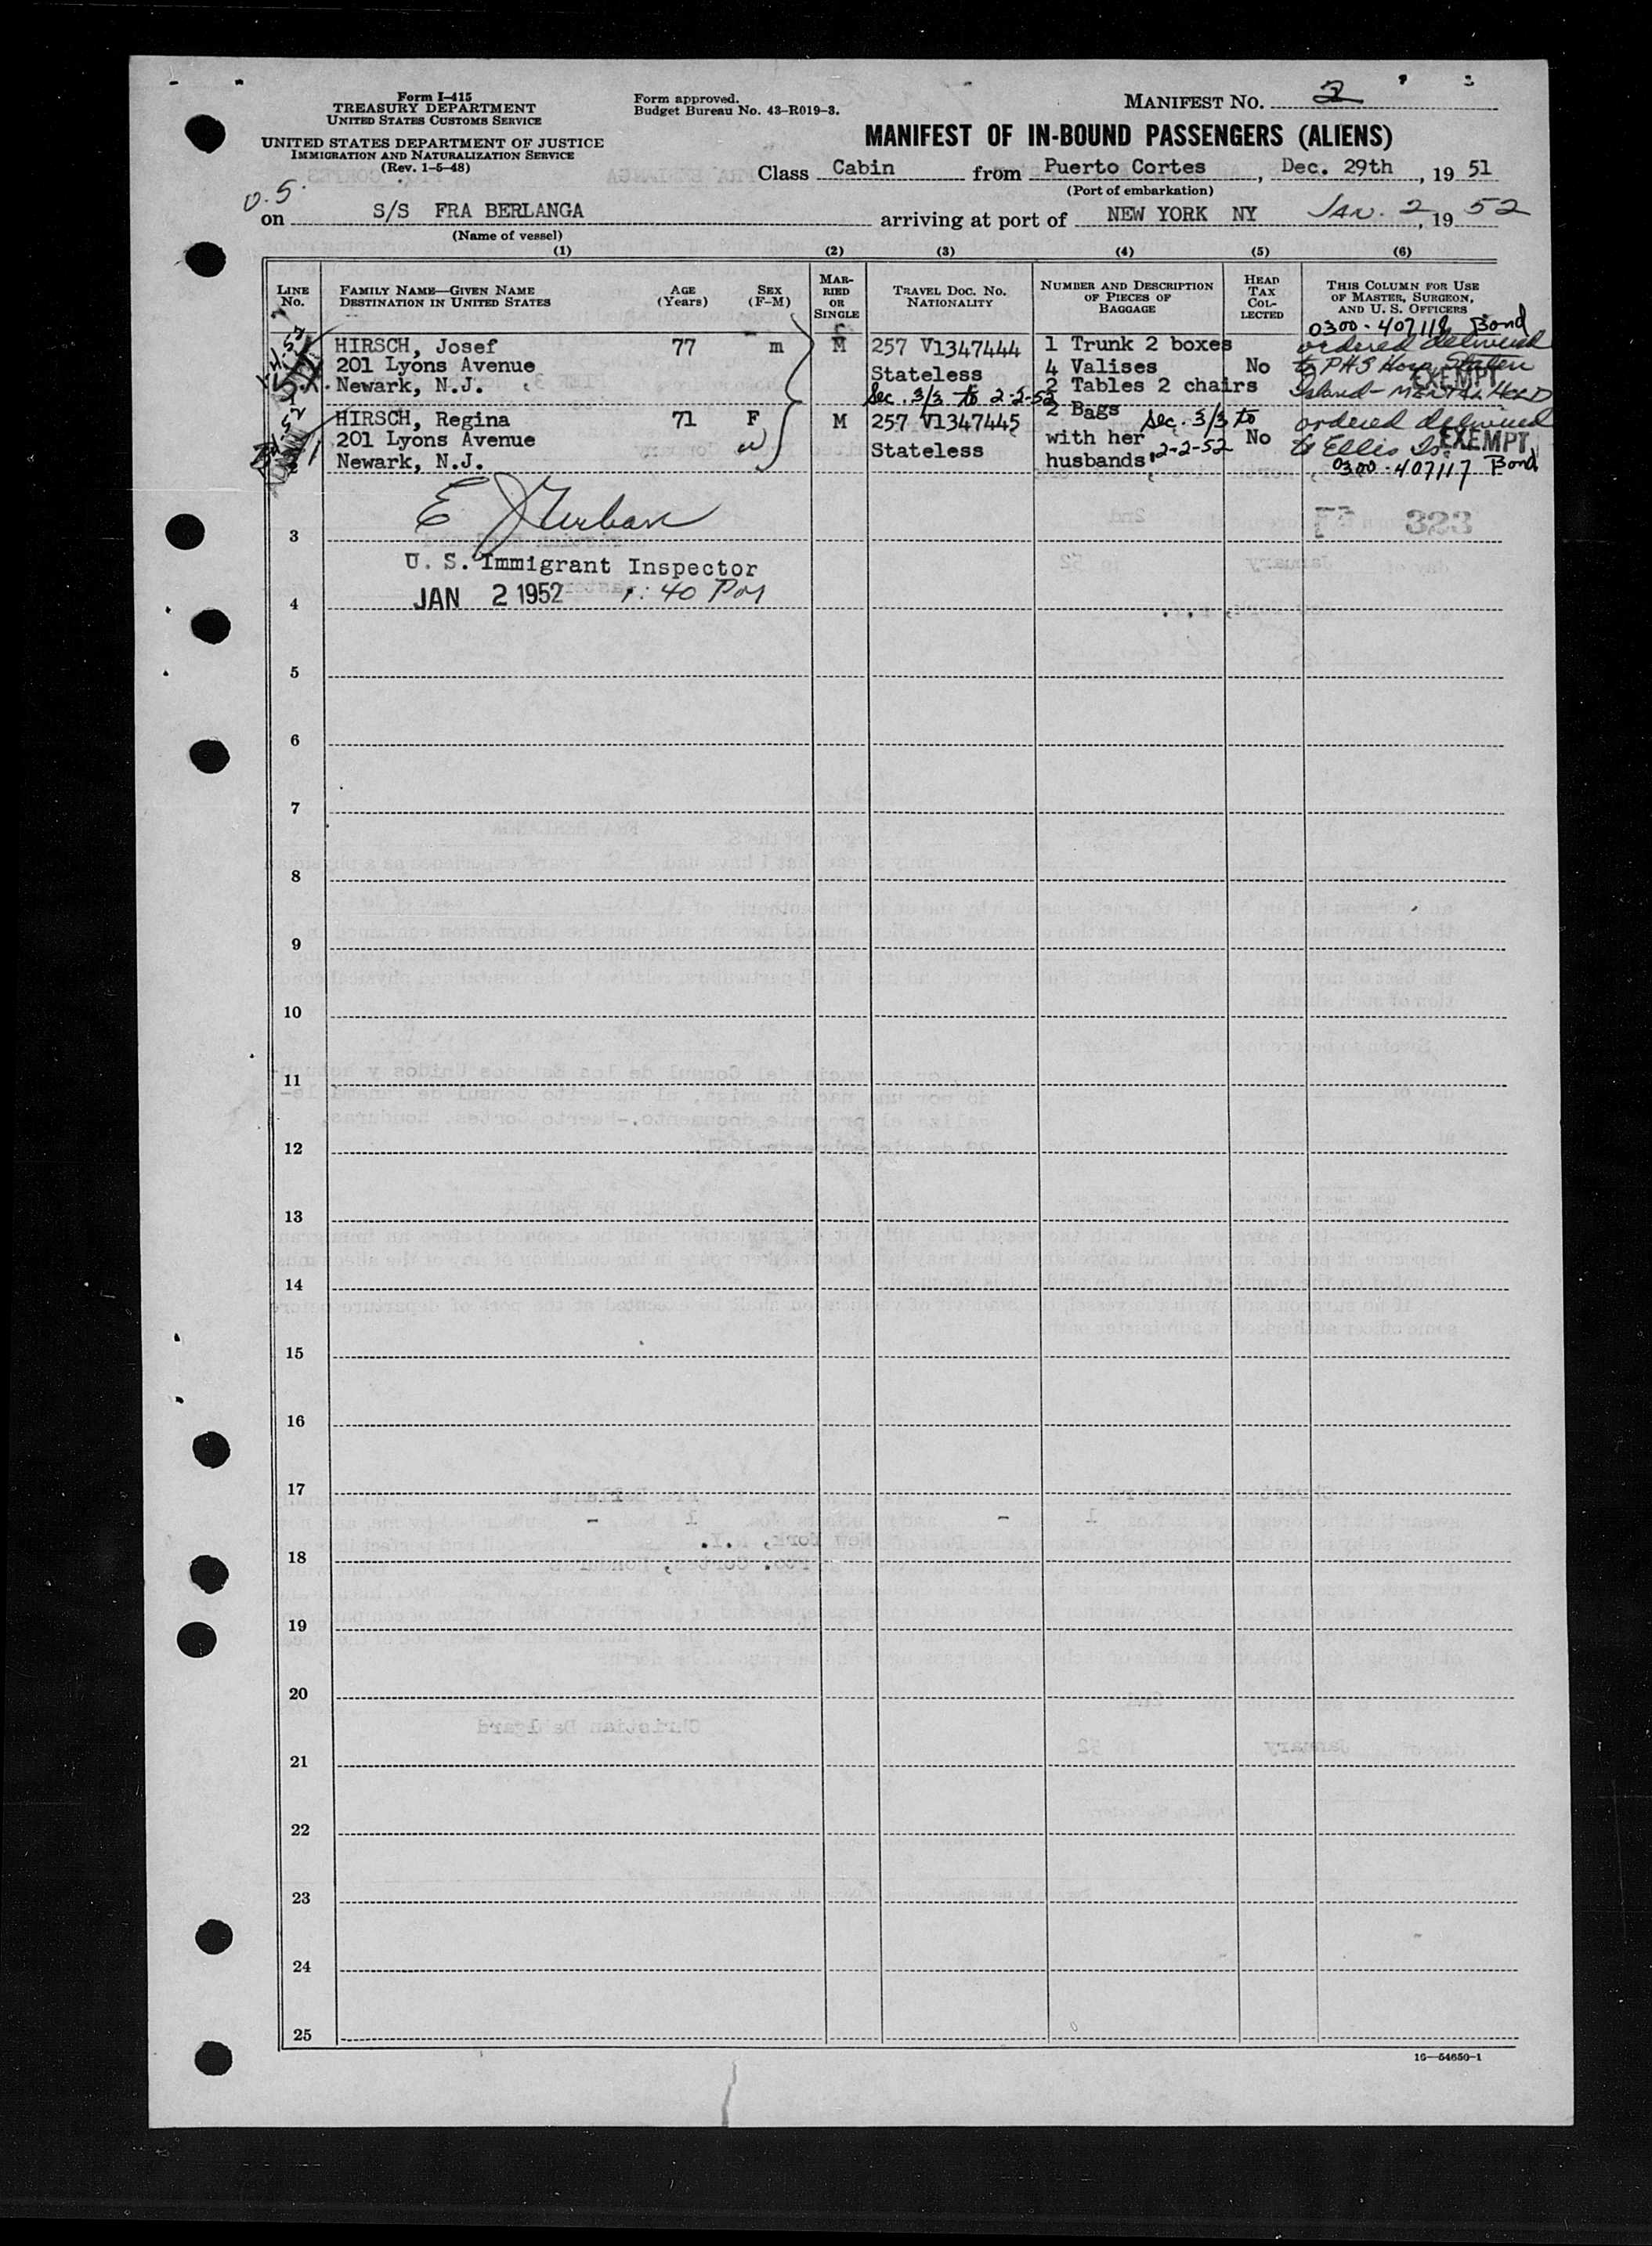 Form I-415
TREASURY DEPARTMENT
UNITED STATES CUSTOMS SERVICE
UNITED STATES DEPARTMENT OF JUSTICE
IMMIGRATION AND NATURALIZATION SERVICE
(Rev. 1-5-48)
Form approved.
Budget Bureau No. 43-R019-3.
MANIFEST NO. 2
MANIFEST OF IN-BOUND PASSENGERS (ALIENS)
Class Cabin from Puerto Cortes, Dec. 29th, 19 51
(Port of embarkation)
on S/S FRA BERLANGA arriving at port of NEW YORK NY JAN. 2, 19 52
(Name of vessel)
(1) (2) (3) (4) (5) (6)
LINE No.
FAMILY NAME—GIVEN NAME
DESTINATION IN UNITED STATES
AGE
(Years)
SEX
(F-M)
MARRIED OR SINGLE
TRAVEL DOC. NO.
NATIONALITY
NUMBER AND DESCRIPTION
OF PIECES OF
BAGGAGE
HEAD TAX COLLECTED
THIS COLUMN FOR USE
OF MASTER, SURGEON,
AND U. S. OFFICERS
0300-407118 Bond
HIRSCH, Josef 77 m M 257 V1347444 1 Trunk 2 boxes ordered delivered
201 Lyons Avenue Stateless 4 Valises No to PHS Hosp Staten
Newark, N.J. Sec. 3/3 to 2-2-52 2 Tables 2 chairs EXEMPT Island-
2 Bags
HIRSCH, Regina 71 F M 257 V1347445 Sec. 3/3 to ordered delivered
201 Lyons Avenue with her 2-2-52 No to Ellis Is. EXEMPT
Newark, N.J. Stateless husbands' 0300-407117 Bond
3
U. S. Immigrant Inspector
4 JAN 2 1952 1:40 PM
5
6
7
8
9
10
11
12
13
14
15
16
17
18
19
20
21
22
23
24
25
16—54650-1